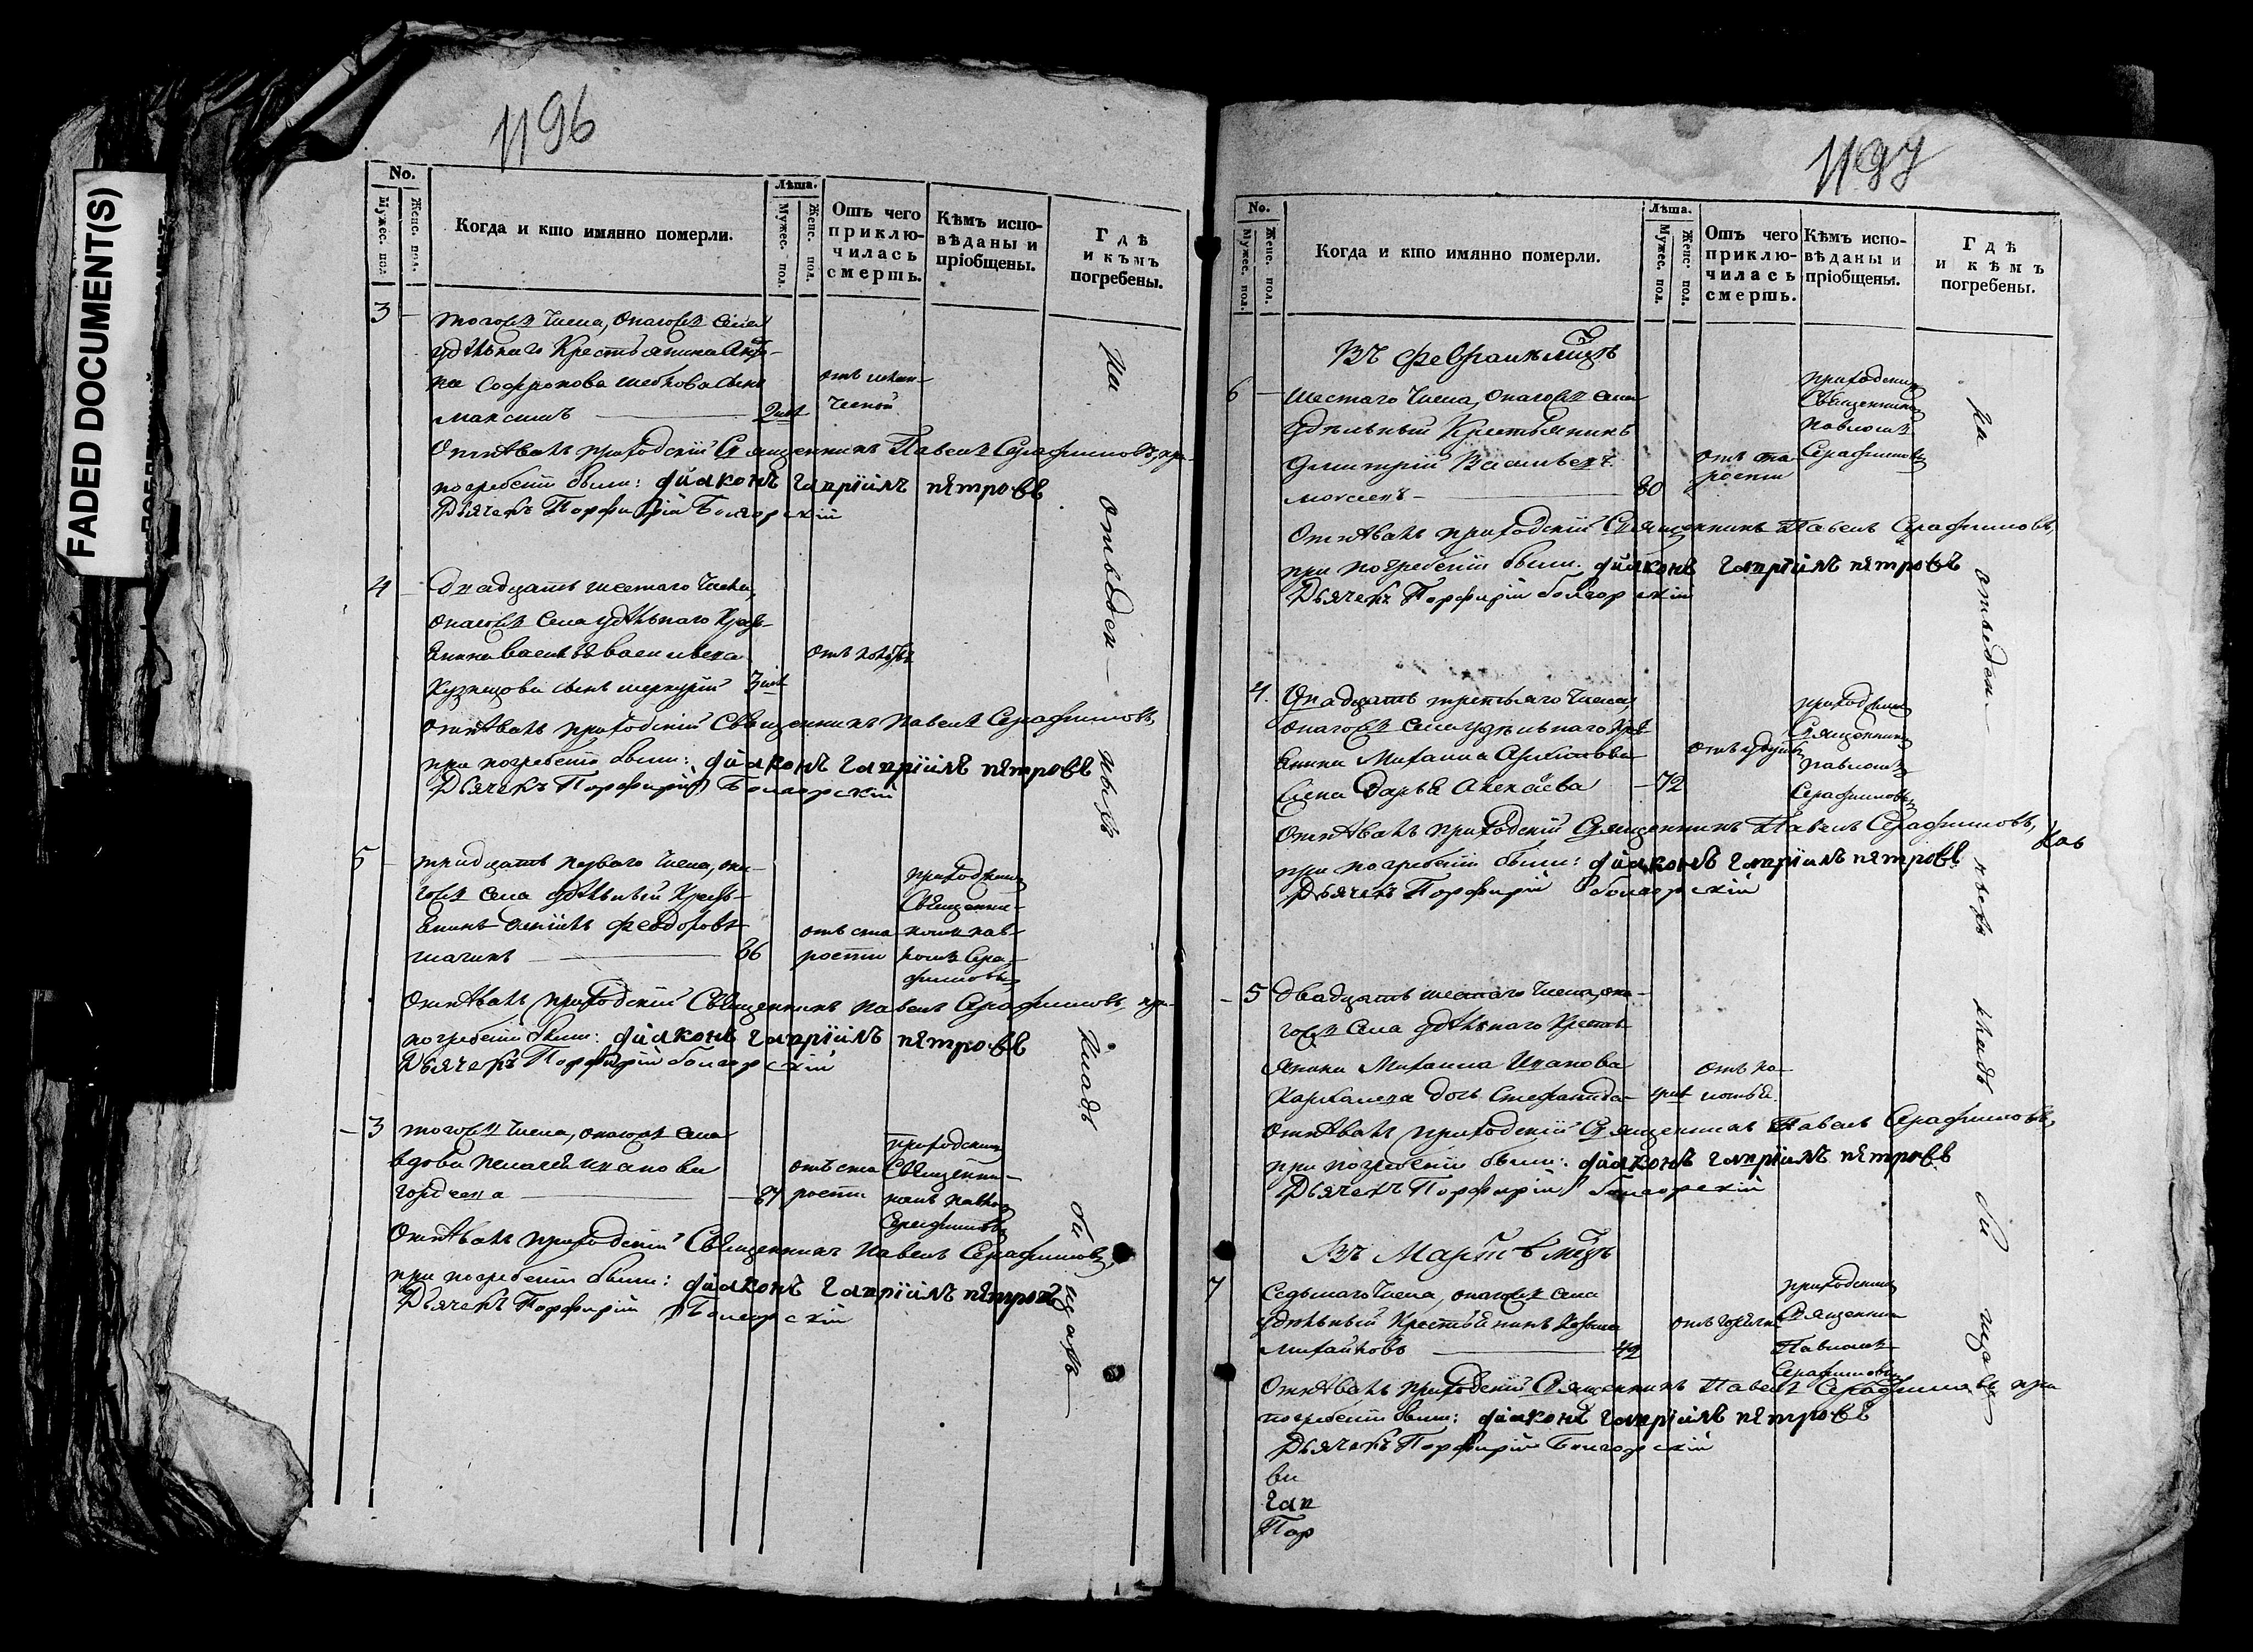 FADED DOCUMENT(S)
1196
No.
Мужес. пол
Женс. пол.
Когда и кто имянно померли.
Лѣта.
Мужес. пол.
Женс. пол.
Отъ чего
приклю-
чилась
смерть.
Кѣмъ испо-
вѣданы и
пріобщены.
Гдѣ
и кѣмъ
погребены.
3
тогожъ числа, онагожъ села
удѣльнаго Крестьянина
Софронова сынъ
Максимъ
Отпѣвалъ приходскій Священникъ Павелъ Серафимовъ, при
погребеніи были: діаконъ гавріилъ пѣтровъ
Дьячекъ Порфирій Болгорскій
4
Двадцать шестаго числа,
онагожъ села удѣльнаго Кресть-
янина Василья Васильева
Кузнецова сынъ меркурій
Отпѣвалъ приходскій Священникъ Павелъ Серафимовъ,
при погребеніи были: діаконъ гавріилъ пѣтровъ
Дьячекъ Порфирій Болгорскій
5
тридцать перваго числа, она-
гожъ села удѣльный Кресть-
янинъ феодоровъ
66
отъ ста
рости
приходскимъ
Священни-
комъ Пав-
ломъ Сера-
фимовымъ
Отпѣвалъ приходскій Священникъ Павелъ Серафимовъ, при
погребеніи были: діаконъ гавріилъ пѣтровъ
Дьячекъ Порфирій болгорскій
3
тогожъ числа, онагожъ села
вдова Пелагея иванова
67
отъ ста
рости
приходскимъ
Священни-
комъ Павломъ
Серафимовымъ
Отпѣвалъ приходскій Священникъ Павелъ Серафимовъ,
при погребеніи были: діаконъ гавріилъ пѣтровъ
Дьячекъ Порфирій Болгорскій
на отведен-ныхъ кладбищахъ
1197
No.
Мужес. пол.
Женс. пол.
Когда и кто имянно померли.
Лѣта.
Мужес. пол.
Женс. пол.
Отъ чего
приклю-
чилась
смерть.
Кѣмъ испо-
вѣданы и
пріобщены.
Гдѣ
и кѣмъ
погребены.
Въ Февралѣ мцѣ
6
шестаго числа, онагожъ села
Удѣльный Крестьянинъ
Димитрій Васильевъ
80
отъ ста
рости
приходскимъ
Священникомъ
Павломъ
Серафимовымъ
Отпѣвалъ приходскій Священникъ Павелъ Серафимовъ,
при погребеніи были: діаконъ гавріилъ пѣтровъ
Дьячекъ Порфирій болгорскій
4
Двадцать третьяго числа
онагожъ села удѣльнаго Крест-
янина Михаила
жена Дарья Алексѣева
72
приходскимъ
Священникомъ
Павломъ
Серафимовымъ
Отпѣвалъ приходскій Священникъ Павелъ Серафимовъ,
при погребеніи были: діаконъ гавріилъ пѣтровъ
Дьячекъ Порфирій болгорскій
5
двадцать шестаго числа, она-
гожъ села удѣльнаго Кресть-
янина Михаила Иванова
дочь Стефанида
Отпѣвалъ приходскій Священникъ Павелъ Серафимовъ,
при погребеніи были: діаконъ гавріилъ пѣтровъ
Дьячекъ Порфирій болгорскій
Въ Мартѣ мцѣ
7
Седьмаго числа, онагожъ села
удѣльный Крестьянинъ Козьма
Михайловъ
42
отъ горячки
приходскимъ
Священни
Павломъ
Серафимовымъ
Отпѣвалъ приходскій Священникъ Павелъ Серафимовъ, при
погребеніи были: діаконъ гавріилъ пѣтровъ
Дьячекъ Порфирій Болгорскій
гав
Пор
на отведен-
кладбищахъ